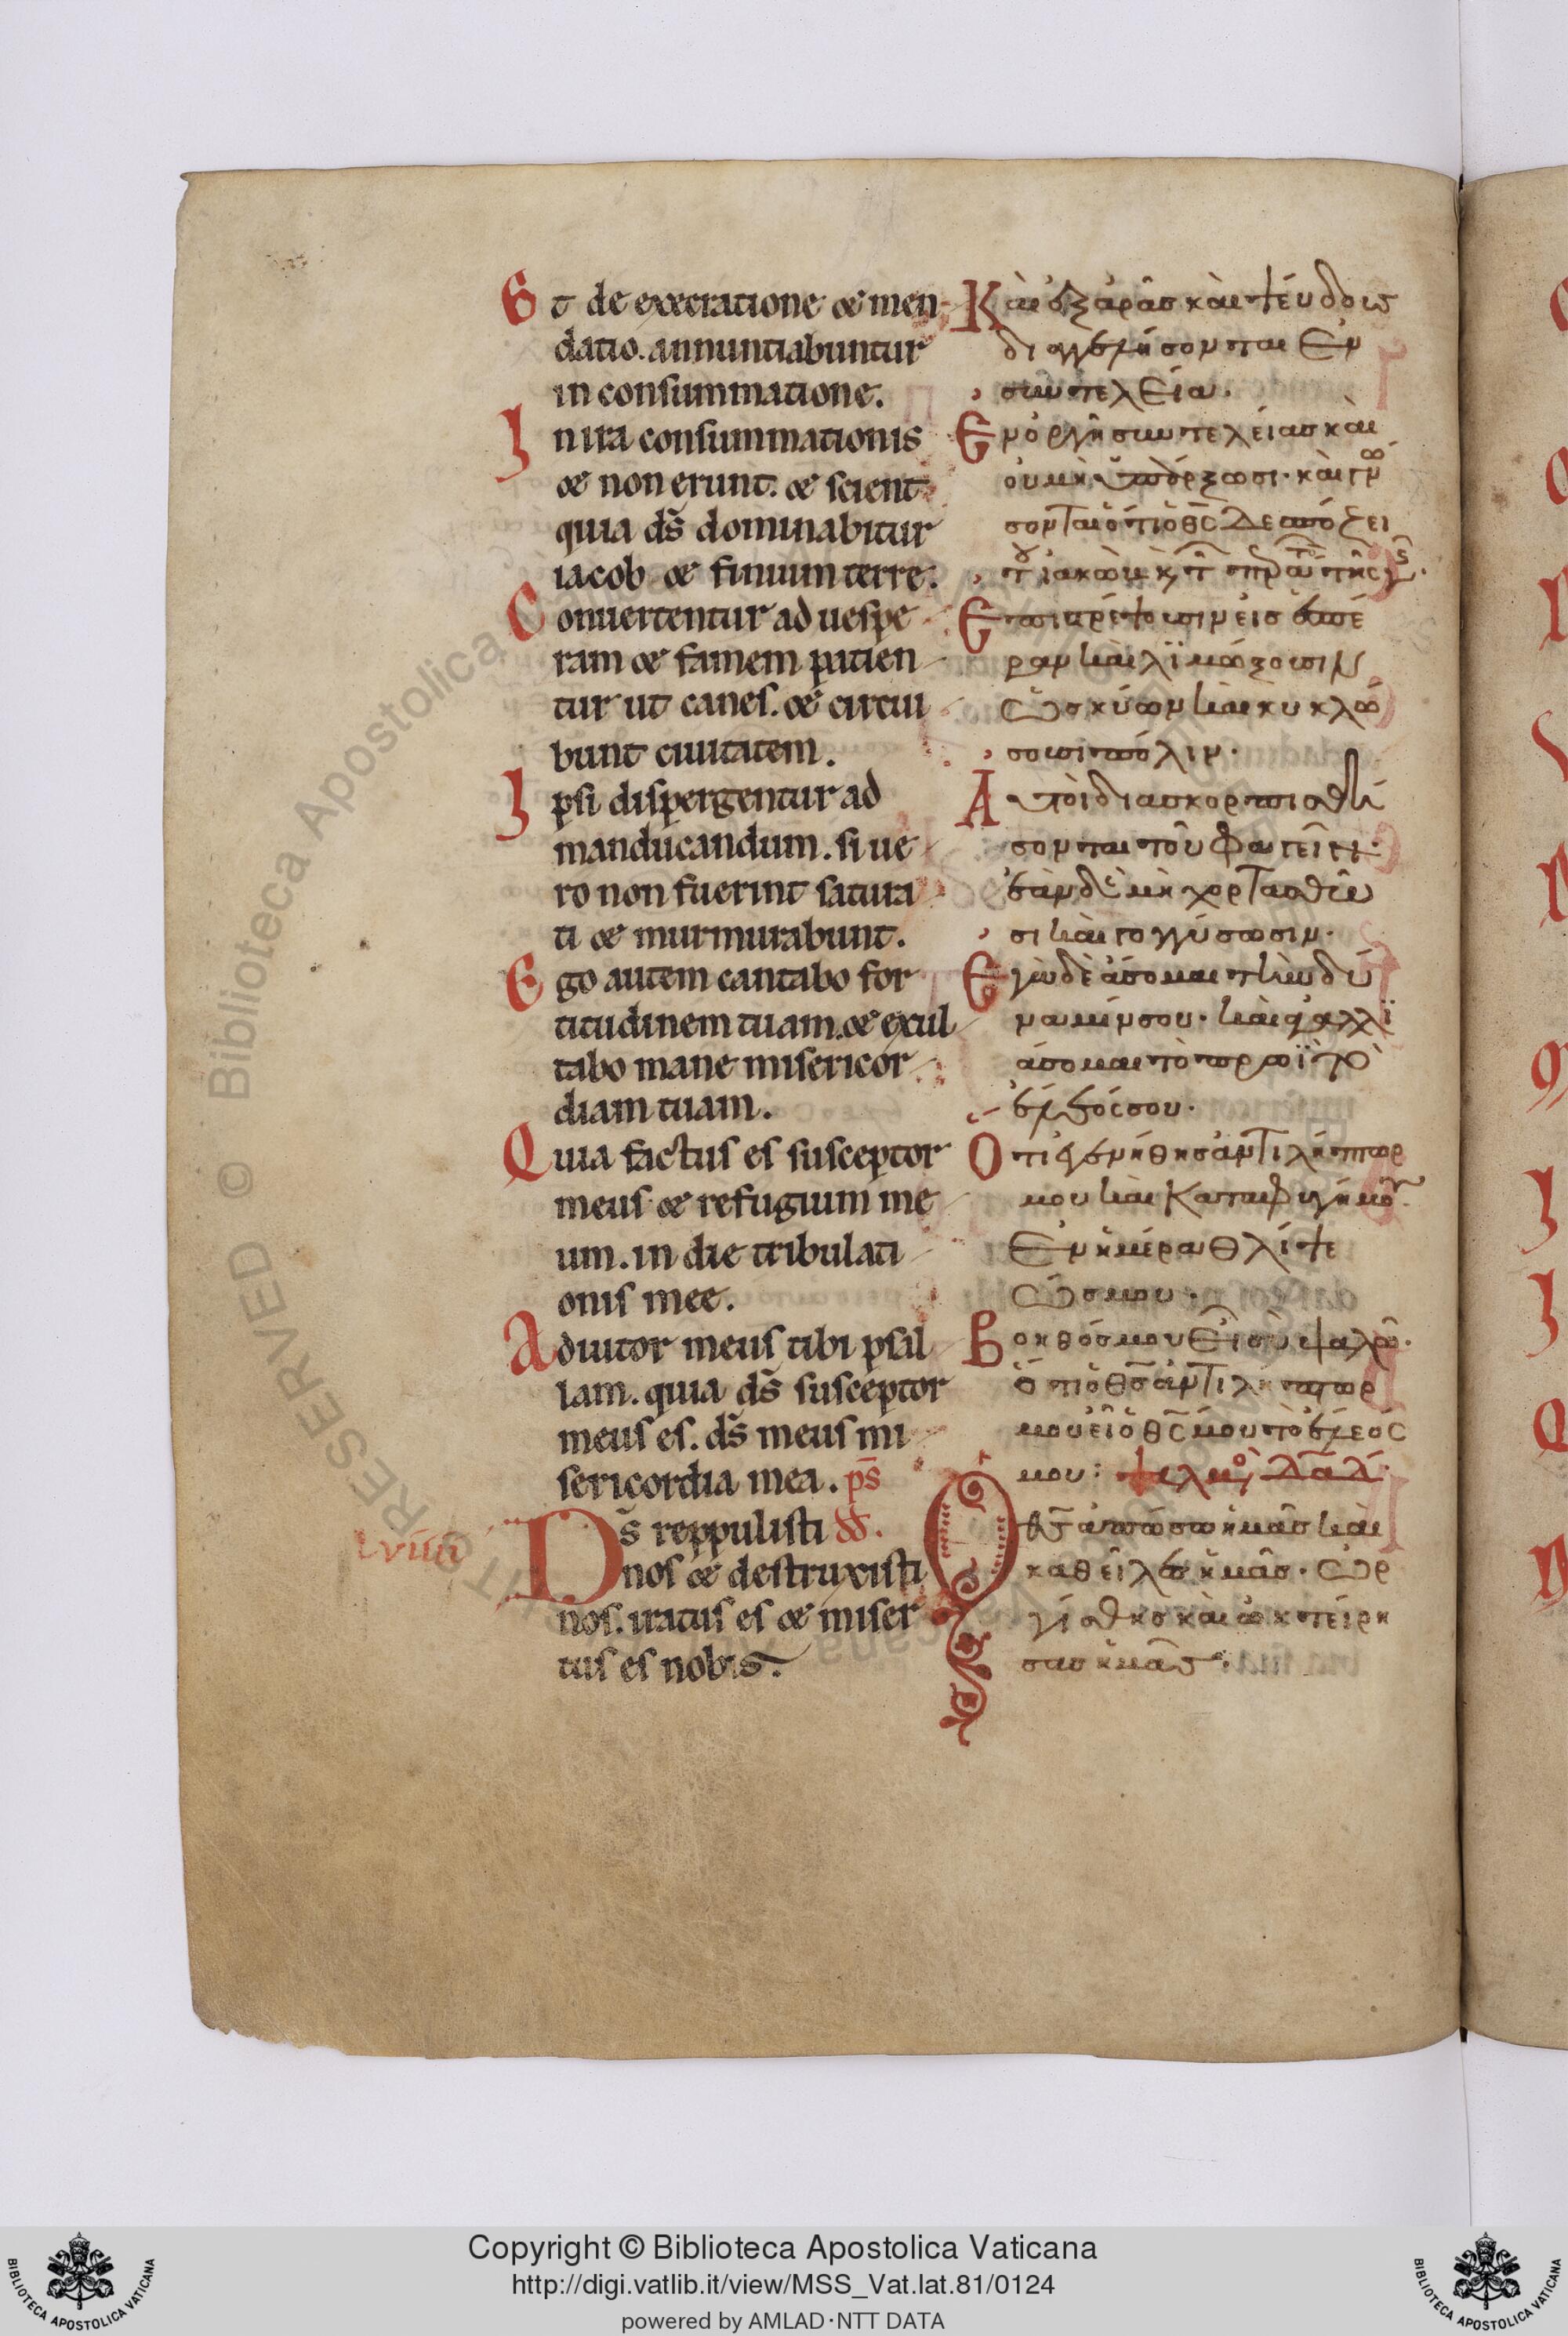 Et de execratione et men
datio. annuntiabuntur
in consummatione.
In ira consummationis
et non erunt. et scient
quia ds̄ dominabitur
iacob et finium terre.
Conuertentur ad uespe
ram et famem patien
tur ut canes. et circui
bunt ciuitatem.
Ipsi dispergentur ad
manducandum. si ue
ro non fuerint satura
ti et murmurabunt.
Ego autem cantabo for
titudinem tuam. et exul
tabo mane misericor
diam tuam.
Quia factus es susceptor
meus et refugium me
um. in die tribulati
onis mee.
Adiutor meus tibi psal
lam. quia ds̄ susceptor
meus es. ds̄ meus mi
sericordia mea. ps̄
lviiii
Ds̄ reppulisti
nos et destruxisti
nos. iratus es et miser
tus es nobis.
Καὶ ἐξ ἀρᾶσ καὶ ψέυδουσ
διαγγελήσονται ἐν
συντελεία.
Εν ὀργῆ συντελείασ καὶ
ου μὴ ὑπάρξωσι. καὶ γνώ
σονται ὅτι ὁ θς̄ δεσπόζει
τοῦ ἰακὼβ καὶ τῶν περάτων τῆς γῆς.
Επιστρέψουσιν εἰσ ἑσπέ
ραν καὶ λϊμώξουσιν
ὡσ κύων καὶ κυκλώ
σουσι πόλιν.
Αυτοὶ διασκορπισθή
σονται τοῦ φαγεῖν.
ἐὰν δὲ μὴ χορτασθῶ
σι καὶ γογγύσωσιν.
Εγὼ δὲ ἄσομαι τὴν δύ
ναμίν σου. καὶ ἀγαλλϊ
άσομαι τὸ πρωῒ τὸ
ἔλεός σου.
Οτι ἐγενήθησ ἀντιλήπτωρ
μου καὶ καταφυγή μου.
Εν ἡμέρα θλίψε
ώσ μου.
Βοηθόσ μου εἶ σὺ ψαλῶ.
ὅτι ὁ θσ̄ ἀντιλήπτωρ
μου εἶ ὁ θς̄ μου τὸ ἔλεός
μου:
Ο θσ̄ ἀπώσω ἡμᾶσ καὶ
καθεῖλεσ ἡμᾶσ. ὠρ
γίσθησ καὶ ὠκτείρη
σασ ἡμᾶσ.
Copyright © Biblioteca Apostolica Vaticana
http://digi.vatlib.it/view/MSS_Vat.lat.81/0124
powered by AMLAD·NTT DATA